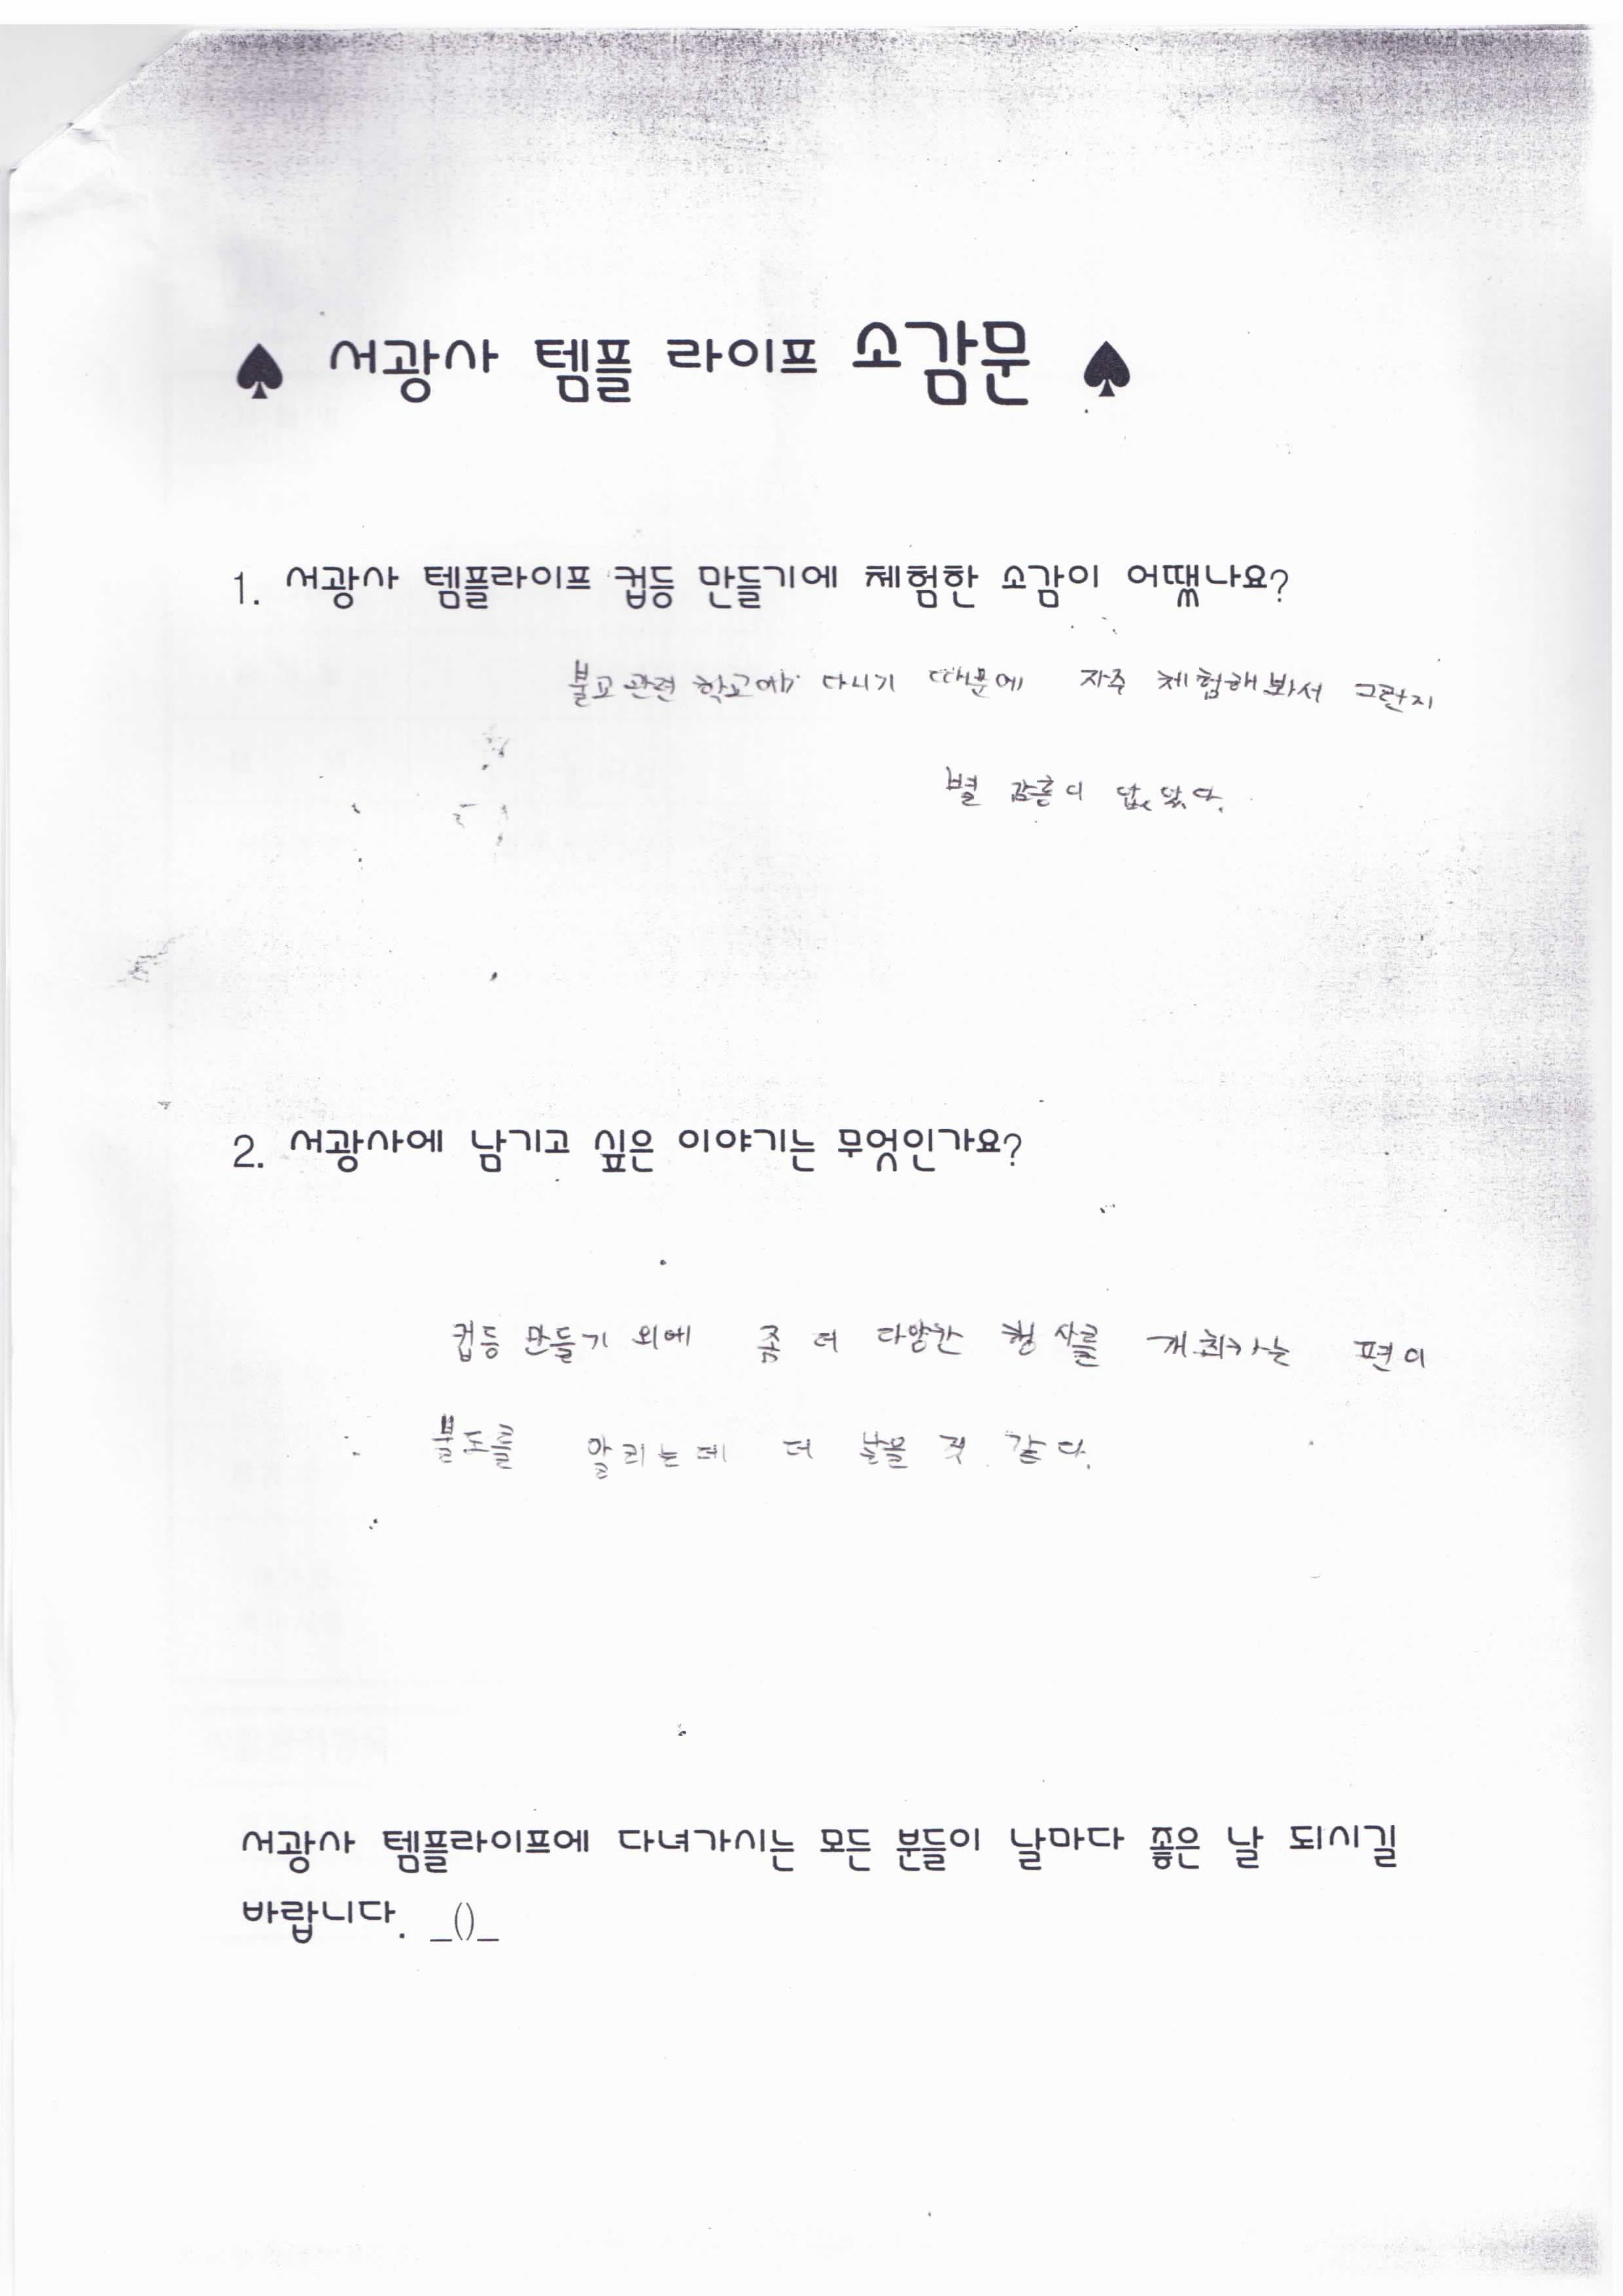 ♠ 서광사 템플 라이프 소감문 ♠
1. 서광사 템플라이프 컵등 만들기에 체험한 소감이 어땠나요?
불교관련 학교에 다니기 때문에 자주 체험해봐서 그런지
별 감흥이
2. 서광사에 남기고 싶은 이야기는 무엇인가요?
컵등 만들기 외에 좀 더 다양한 행사를 개최하는 편이
불도를 알리는데 더 낳을 것 같다.
서광사 템플라이프에 다녀가시는 모든 분들이 날마다 좋은 날 되시길
바랍니다. _()_